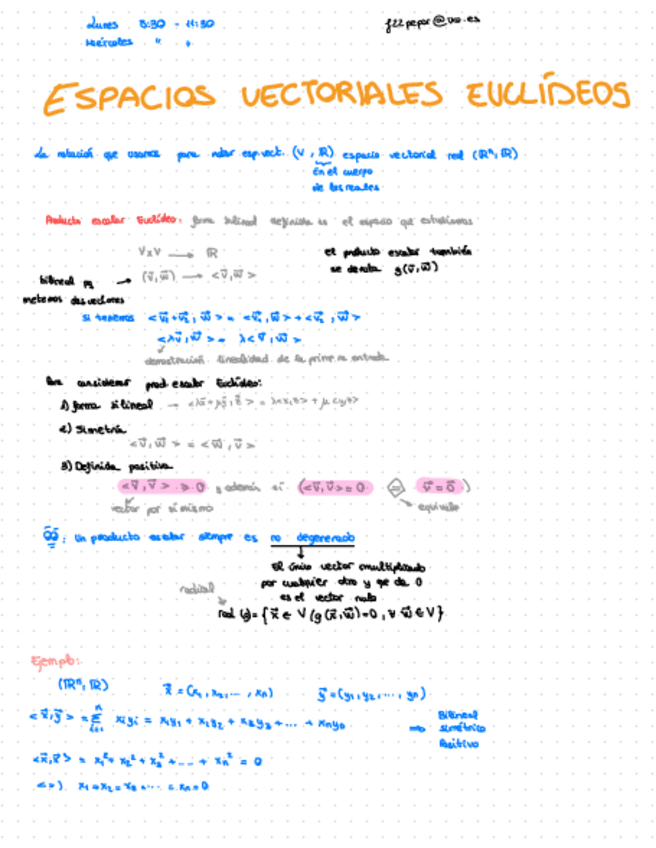 Lunes 8:30 - 11:30
Miércoles " "
f22pepar@uco.es
ESPACIOS VECTORIALES EUCLÍDEOS
La notación que usamos para notar esp.vect. (V, ℝ) espacio vectorial real (ℝⁿ, ℝ)
En el cuerpo
de los reales
Producto escalar Euclídeo: forma bilineal definida en el espacio que estudiamos
V x V → ℝ
(v⃗, w⃗) → <v⃗, w⃗>
el producto escalar también
se denota g(v⃗, w⃗)
bilineal pq
metemos dos vectores
Si tenemos <v⃗₁+v⃗₂, w⃗> = <v⃗₁, w⃗> + <v⃗₂, w⃗>
<λv⃗, w⃗> = λ<v⃗, w⃗>
demostración linealidad de la primera entrada
Para considerar prod.escalar Euclídeo:
1) forma bilineal → <λx⃗+μy⃗, z⃗> = λ<x,z> + μ<y,z>
2) Simetría
<v⃗, w⃗> = <w⃗, v⃗>
3) Definida positiva
<v⃗, v⃗> ≥ 0 y además si (<v⃗, v⃗> = 0 ⇔ v⃗ = 0⃗)
vector por si mismo
equivale
: Un producto escalar siempre es no degenerado
El único vector multiplicado
por cualquier otro y que da 0
es el vector nulo
radical
rad (g) = {x⃗ ∈ V / g(x⃗, w⃗) = 0, ∀ w⃗ ∈ V}
Ejemplo:
(ℝⁿ, ℝ) x⃗ = (x₁, x₂, ..., xₙ) y⃗ = (y₁, y₂, ..., yₙ)
<x⃗, y⃗> = Σⁿᵢ₌₁ xᵢyᵢ = x₁y₁ + x₂y₂ + x₃y₃ + ... + xₙyₙ
⇒ Bilineal
simétrico
Positivo
<x⃗, x⃗> = x₁² + x₂² + x₃² + ... + xₙ² = 0
<=> x₁ = x₂ = x₃ = ... = xₙ = 0